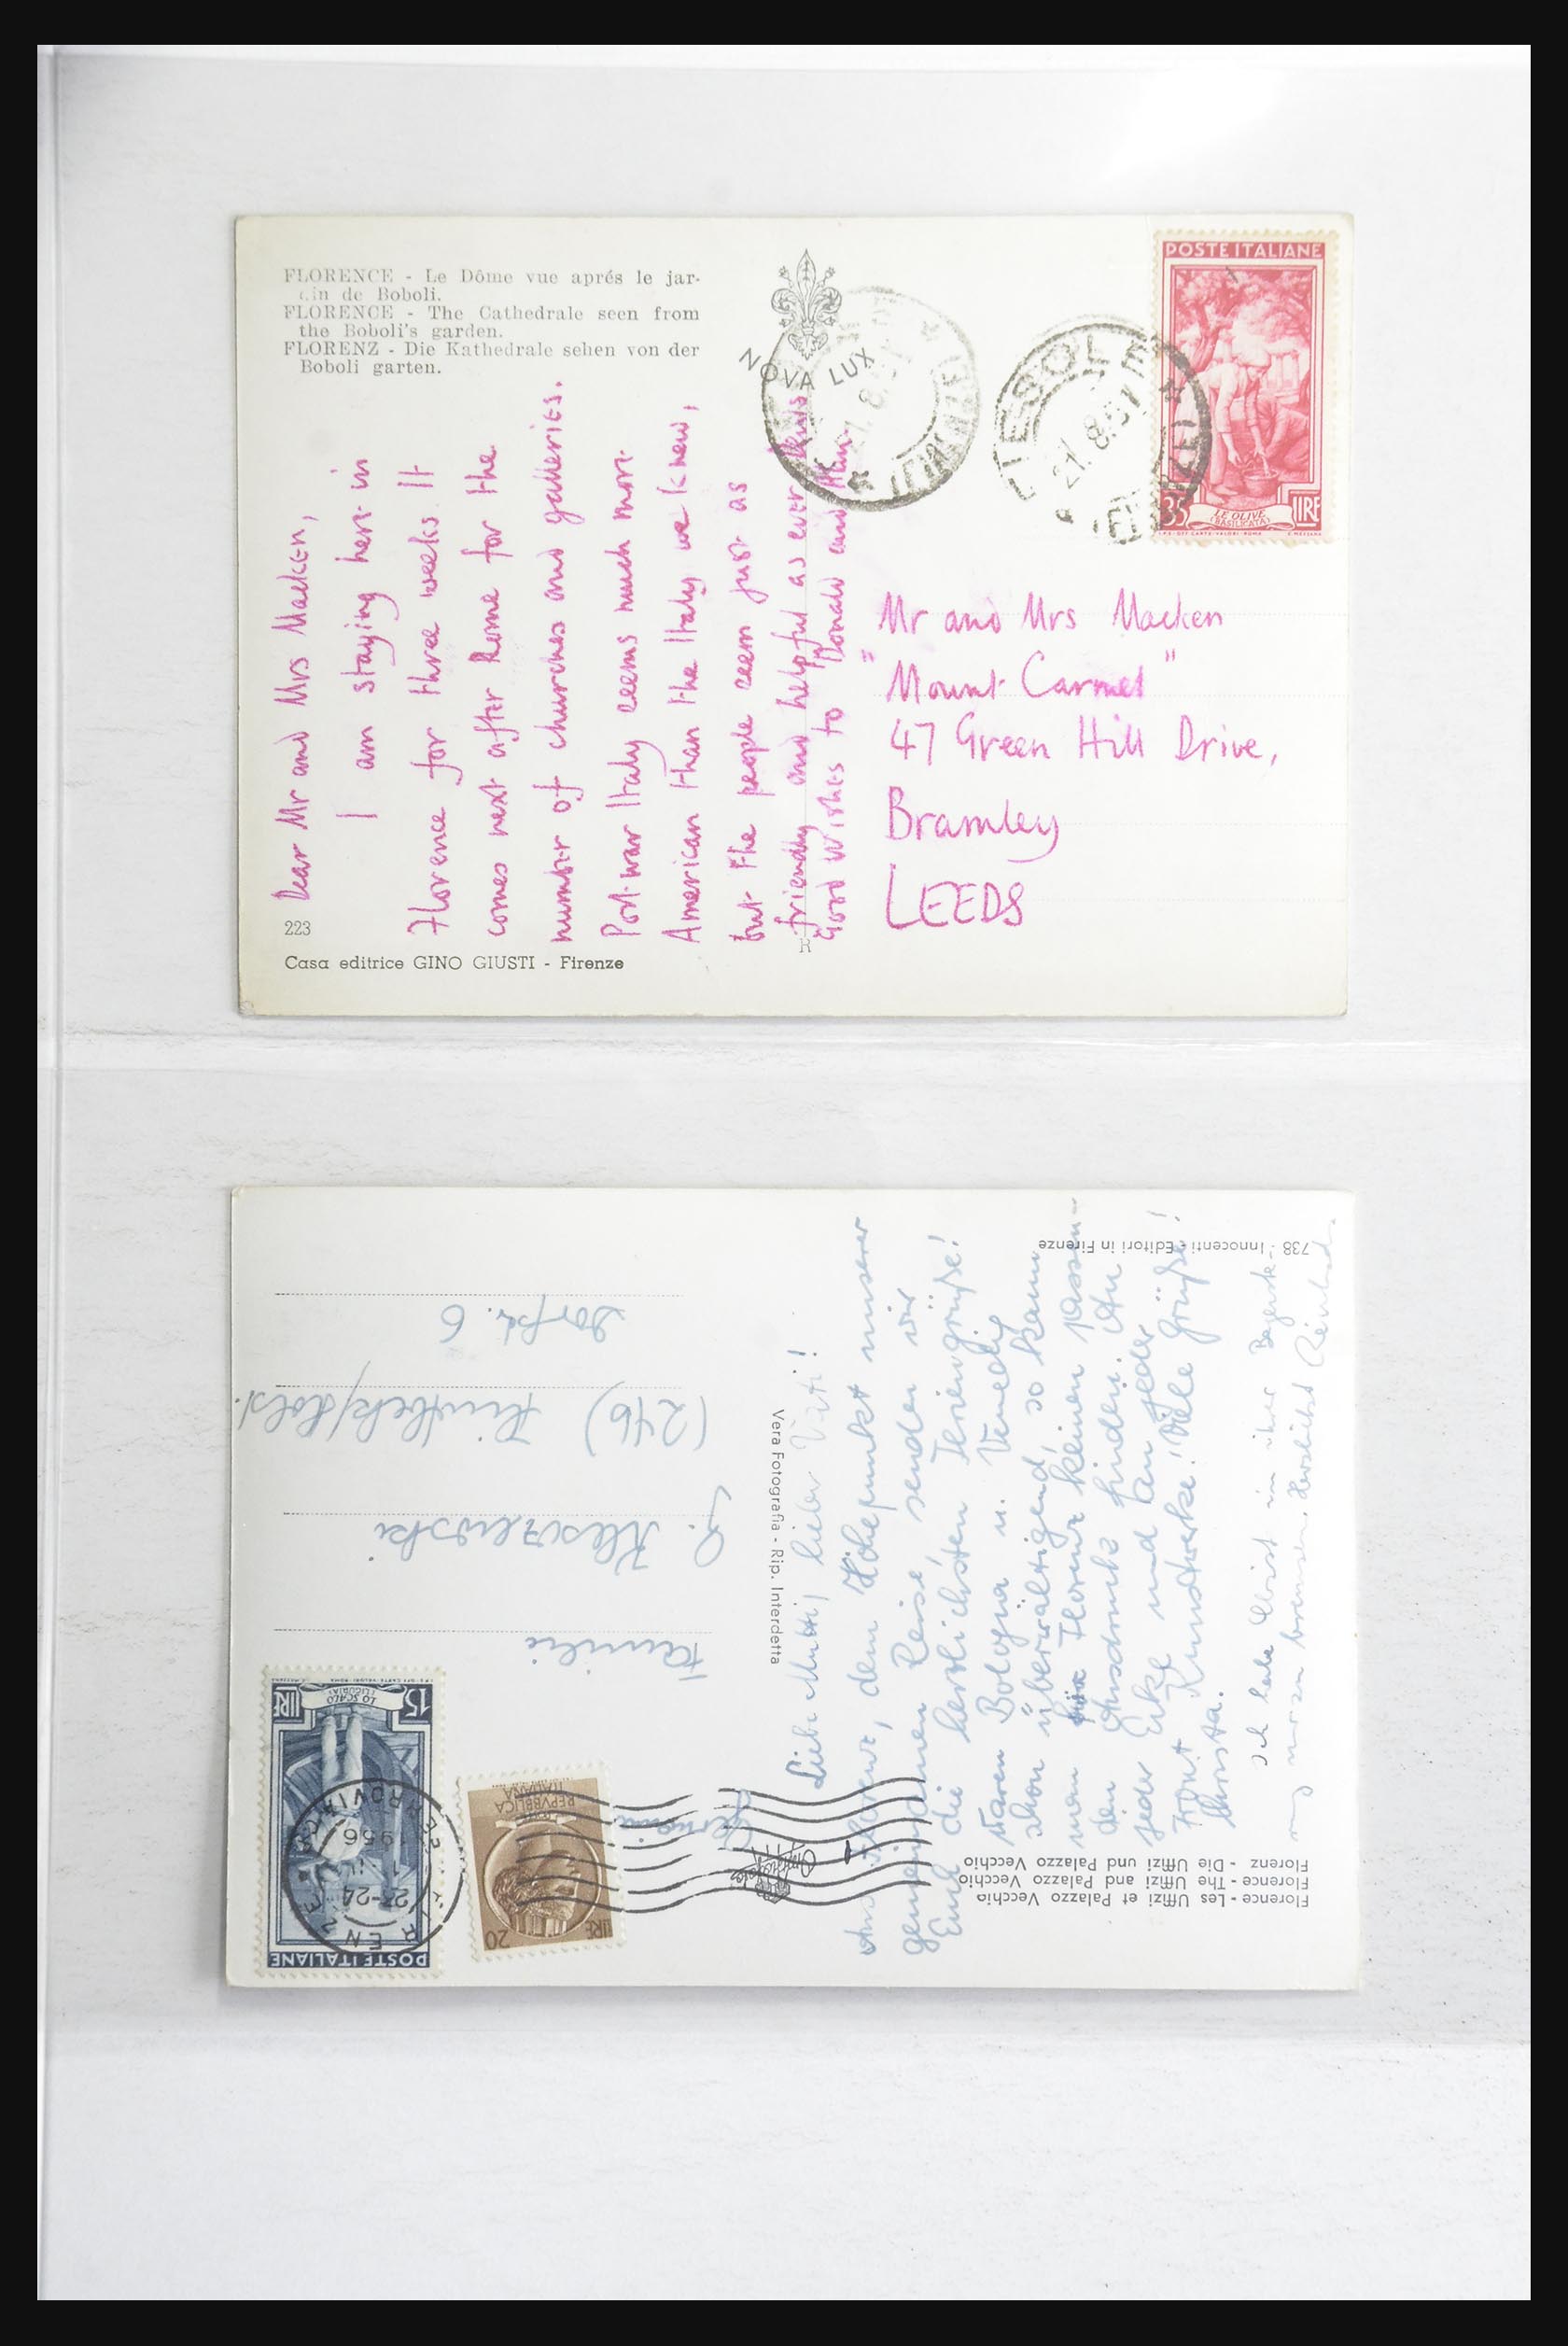 FLORENCE - Le Dôme vue aprés le jar-
din de Boboli.
FLORENCE - The Cathedrale seen from
the Boboli's garden.
FLORENZ - Die Kathedrale sehen von der
Boboli garten.
NOVA LUX
Dear Mr and Mrs Macken,
I am staying here in
Florence for three weeks. It
comes next after Rome for the
number of churches and galleries.
Post-war Italy seems much more
American than the Italy we knew,
but the people seem just as
friendly and helpful as ever
Good wishes to Donald and
223
Casa editrice GINO GIUSTI - Firenze
R
FIESOLE
21.8.51
POSTE ITALIANE
35 LIRE
LE OLIVE
(BASILICATA)
I.P.S.-OFF. CARTE-VALORI-ROMA
Mr and Mrs Macken
"Mount Carmel"
47 Green Hill Drive,
Bramley
LEEDS
Florence - Les Uffizi et Palazzo Vecchio
Florence - The Uffizi and Palazzo Vecchio
Florenz - Die Uffizi und Palazzo Vecchio
Liebe Mutti, lieber Vati!
Aus Florenz, dem Höhepunkt unserer
gemeinsamen Reise, senden wir
Euch die herzlichsten Feriengrüße!
Waren Bologna u. Venedig
schon überwältigend, so kann
man für Florenz keinen passen-
den Ausdruck finden. An
jeder Ecke und an jeder
Front Kunstwerke! Viele Grüße!
Christa.
Ich habe Christ in ihrer Begeiste-
rung
bremsen. Herzlichst
738 - Innocenti - Editori in Firenze
Vera Fotografia - Rip. Interdetta
POSTE ITALIANE
15 LIRE
LO SCALO
(LIGURIA)
FERROVIA
23-24
1956
REPVBBLICA
ITALIANA
20 LIRE
Germania
Familie
(24b)
Dorfstr. 6